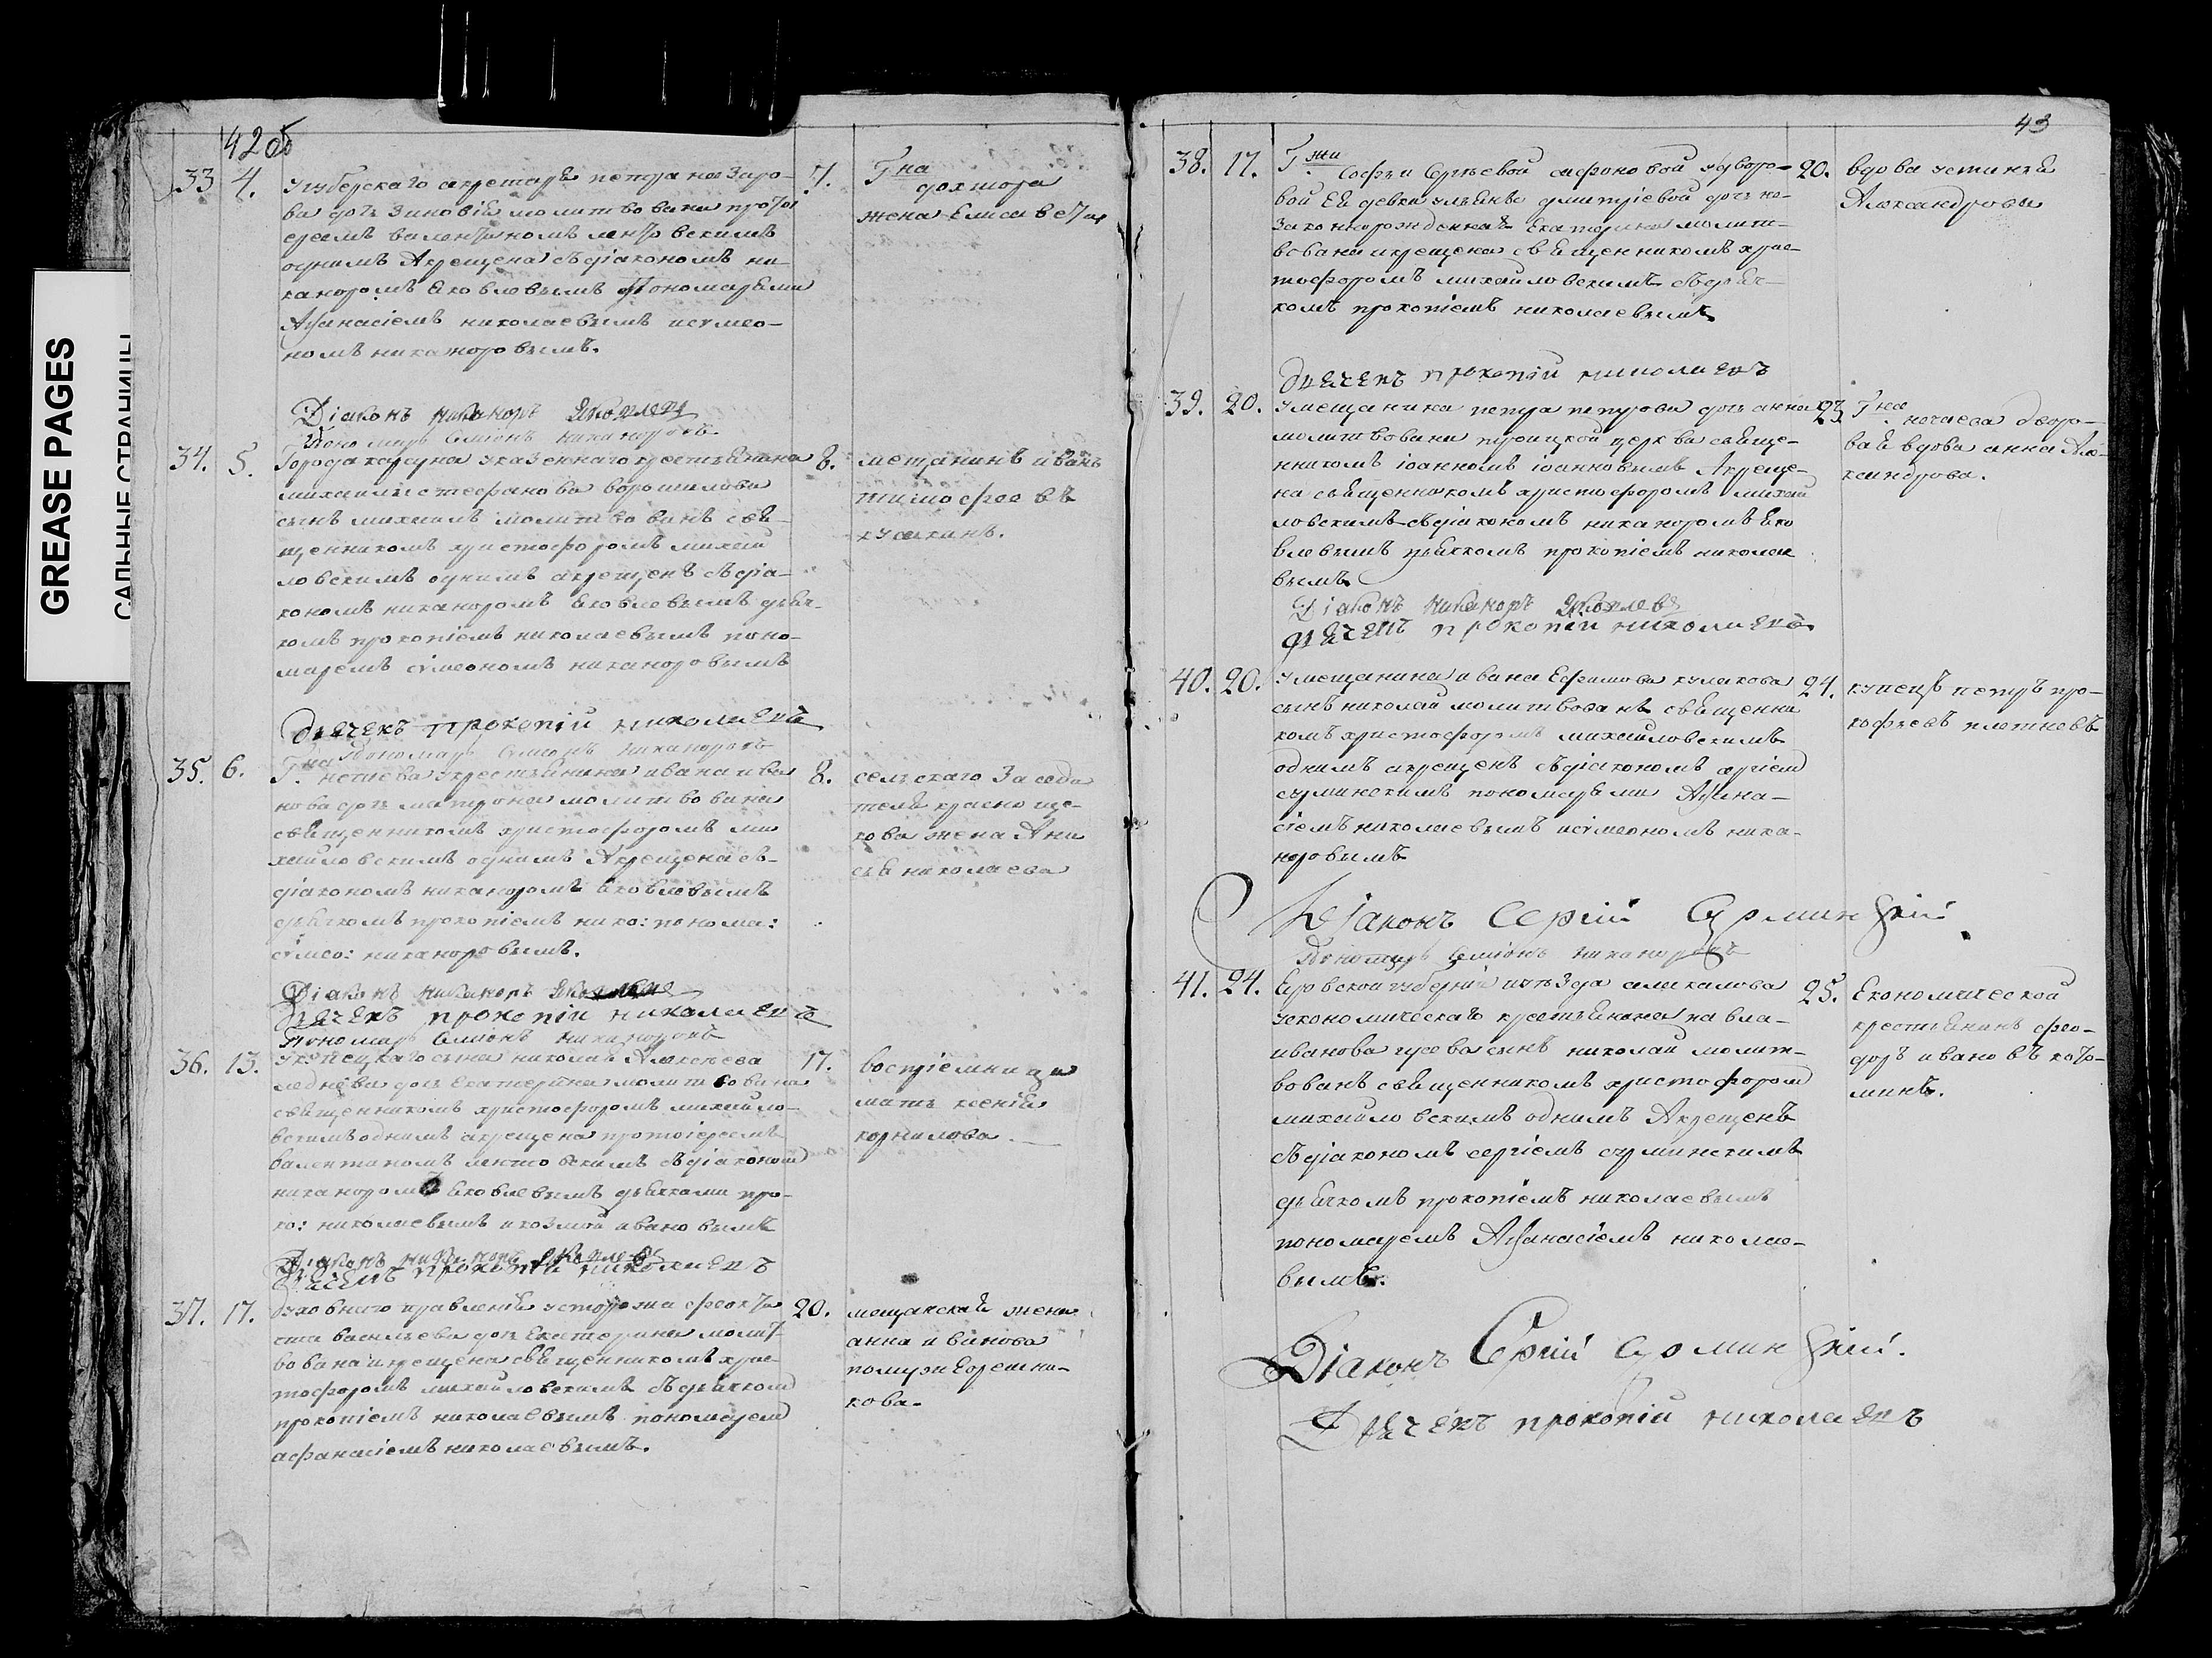 GREASE PAGES
САЛЬНЫЕ СТРАНИЦЫ
42 об
33 4. У губерскаго секретаря петра назаро-
ва дочь Зиновія молитвована прото
ереемъ валентиномъ
однимъ Акрещена съдіакономъ ни-
каноромъ Яковлевымъ Пономарями
Афанасіемъ николаевымъ исѵмео-
номъ никаноровымъ.
7. Гна
доктора
жена Елисавета
Діаконъ Никаноръ Яковлевъ
Пономарь Симіонъ Никаноровъ
34. 5. Города карсуна указеннаго крестьянина
михаила стефанова ворошилова
сынъ михаилъ молитвованъ свя-
щенникомъ христофоромъ михай
ловскимъ однимъ акрещенъ съдіа-
кономъ никаноромъ Яковлевымъ дьяч-
комъ прокопіемъ николаевымъ поно-
маремъ сѵмеономъ никаноровымъ
8. мещанинъ иванъ
тимофеевъ
Дьячекъ Прокопій николаевъ
Пономарь Симіонъ Никаноровъ
35. 6. Гна нечаева укрестьянина ивана ива
нова дочь матрона молитвована
священникомъ христофоромъ ми
хайловскимъ однимъ Акрещена съ-
діакономъ никаноромъ Яковлевымъ
дьячкомъ прокопіемъ нико: понома:
сѵмео: никаноровымъ.
8. сельскаго Заседа
теля красноще-
кова жена Ани
сья николаева
Діаконъ Никаноръ Яковлевъ
Дьячекъ прокопій николаевъ
Пономарь Симіонъ Никаноровъ
36. 13. Укупецкаго сына николая Алексеева
леднева дочь Екатерина молитвована
священникомъ христофоромъ михайло-
вскимъ однимъ акрещена протоіереемъ
валентиномъ съдіакономъ
никаноромъ Яковлевымъ дьячками про-
ко: николаевымъ икозмой ивановымъ
17. воспріемница
мать ксенія
корнилова.
Діаконъ Никаноръ Яковлевъ
Дьячекъ прокопій николаевъ
37. 17. Духовнаго правленія усторожа феокти
ста васильева дочь Екатерина молит
вована икрещена священникомъ хрис-
тофоромъ михайловскимъ съдьячкомъ
прокопіемъ николаевымъ пономаремъ
афанасіемъ николаевымъ.
20. мещанская жена
анна иванова
помужу Ерешни-
кова.
43
38. 17. Гжи Софьи Сергѣевой сафоновой удворо-
вой Ея девки ульяны дмитріевой дочь не-
Законнорожденная Екатерина молит-
вована икрещена священникомъ хрис-
тофоромъ михайловскимъ съдьяч-
комъ прокопіемъ николаевымъ
20. вдова устинья
Александрова
Дьячекъ прокопій николаевъ
39. 20. Умещанина петра петрова дочь анна
молитвована троицкой церкви свяще-
нникомъ іоанномъ іоанновымъ Акреще-
на священникомъ христофоромъ михай
ловскимъ съдіакономъ никаноромъ Яко
влевымъ дьячкомъ прокопіемъ николае
вымъ
23. Гна нечаева дворо-
вая вдова анна Але-
ксандрова.
Діаконъ Никаноръ Яковлевъ
Дьячекъ прокопій николаевъ.
40. 20. Умещанина ивана Ефимова кулакова
сынъ николай молитвованъ священни
комъ христофоромъ михайловскимъ
однимъ акрещенъ съдіакономъ сергіемъ
сурминскимъ пономарями Афана-
сіемъ николаевымъ исѵмеономъ ника-
норовымъ
24. купецъ петръ про-
кофьевъ плотневъ
Діаконъ Сергій Сурминскій
Пономарь Симіонъ Никаноровъ
41. 24. уезда села
Уекономическаго крестьянина павла
иванова гусева сынъ николай молит-
вованъ священникомъ христофоромъ
михайловскимъ однимъ Акрещенъ
съдіакономъ сергіемъ сурминскимъ
дьячкомъ прокопіемъ николаевымъ
пономаремъ Афанасіемъ николае-
вымъ.
25. Економической
крестьянинъ фео-
доръ ивановъ кото-
минъ.
Діаконъ Сергій Сурминскій.
Дьячекъ прокопій николаевъ